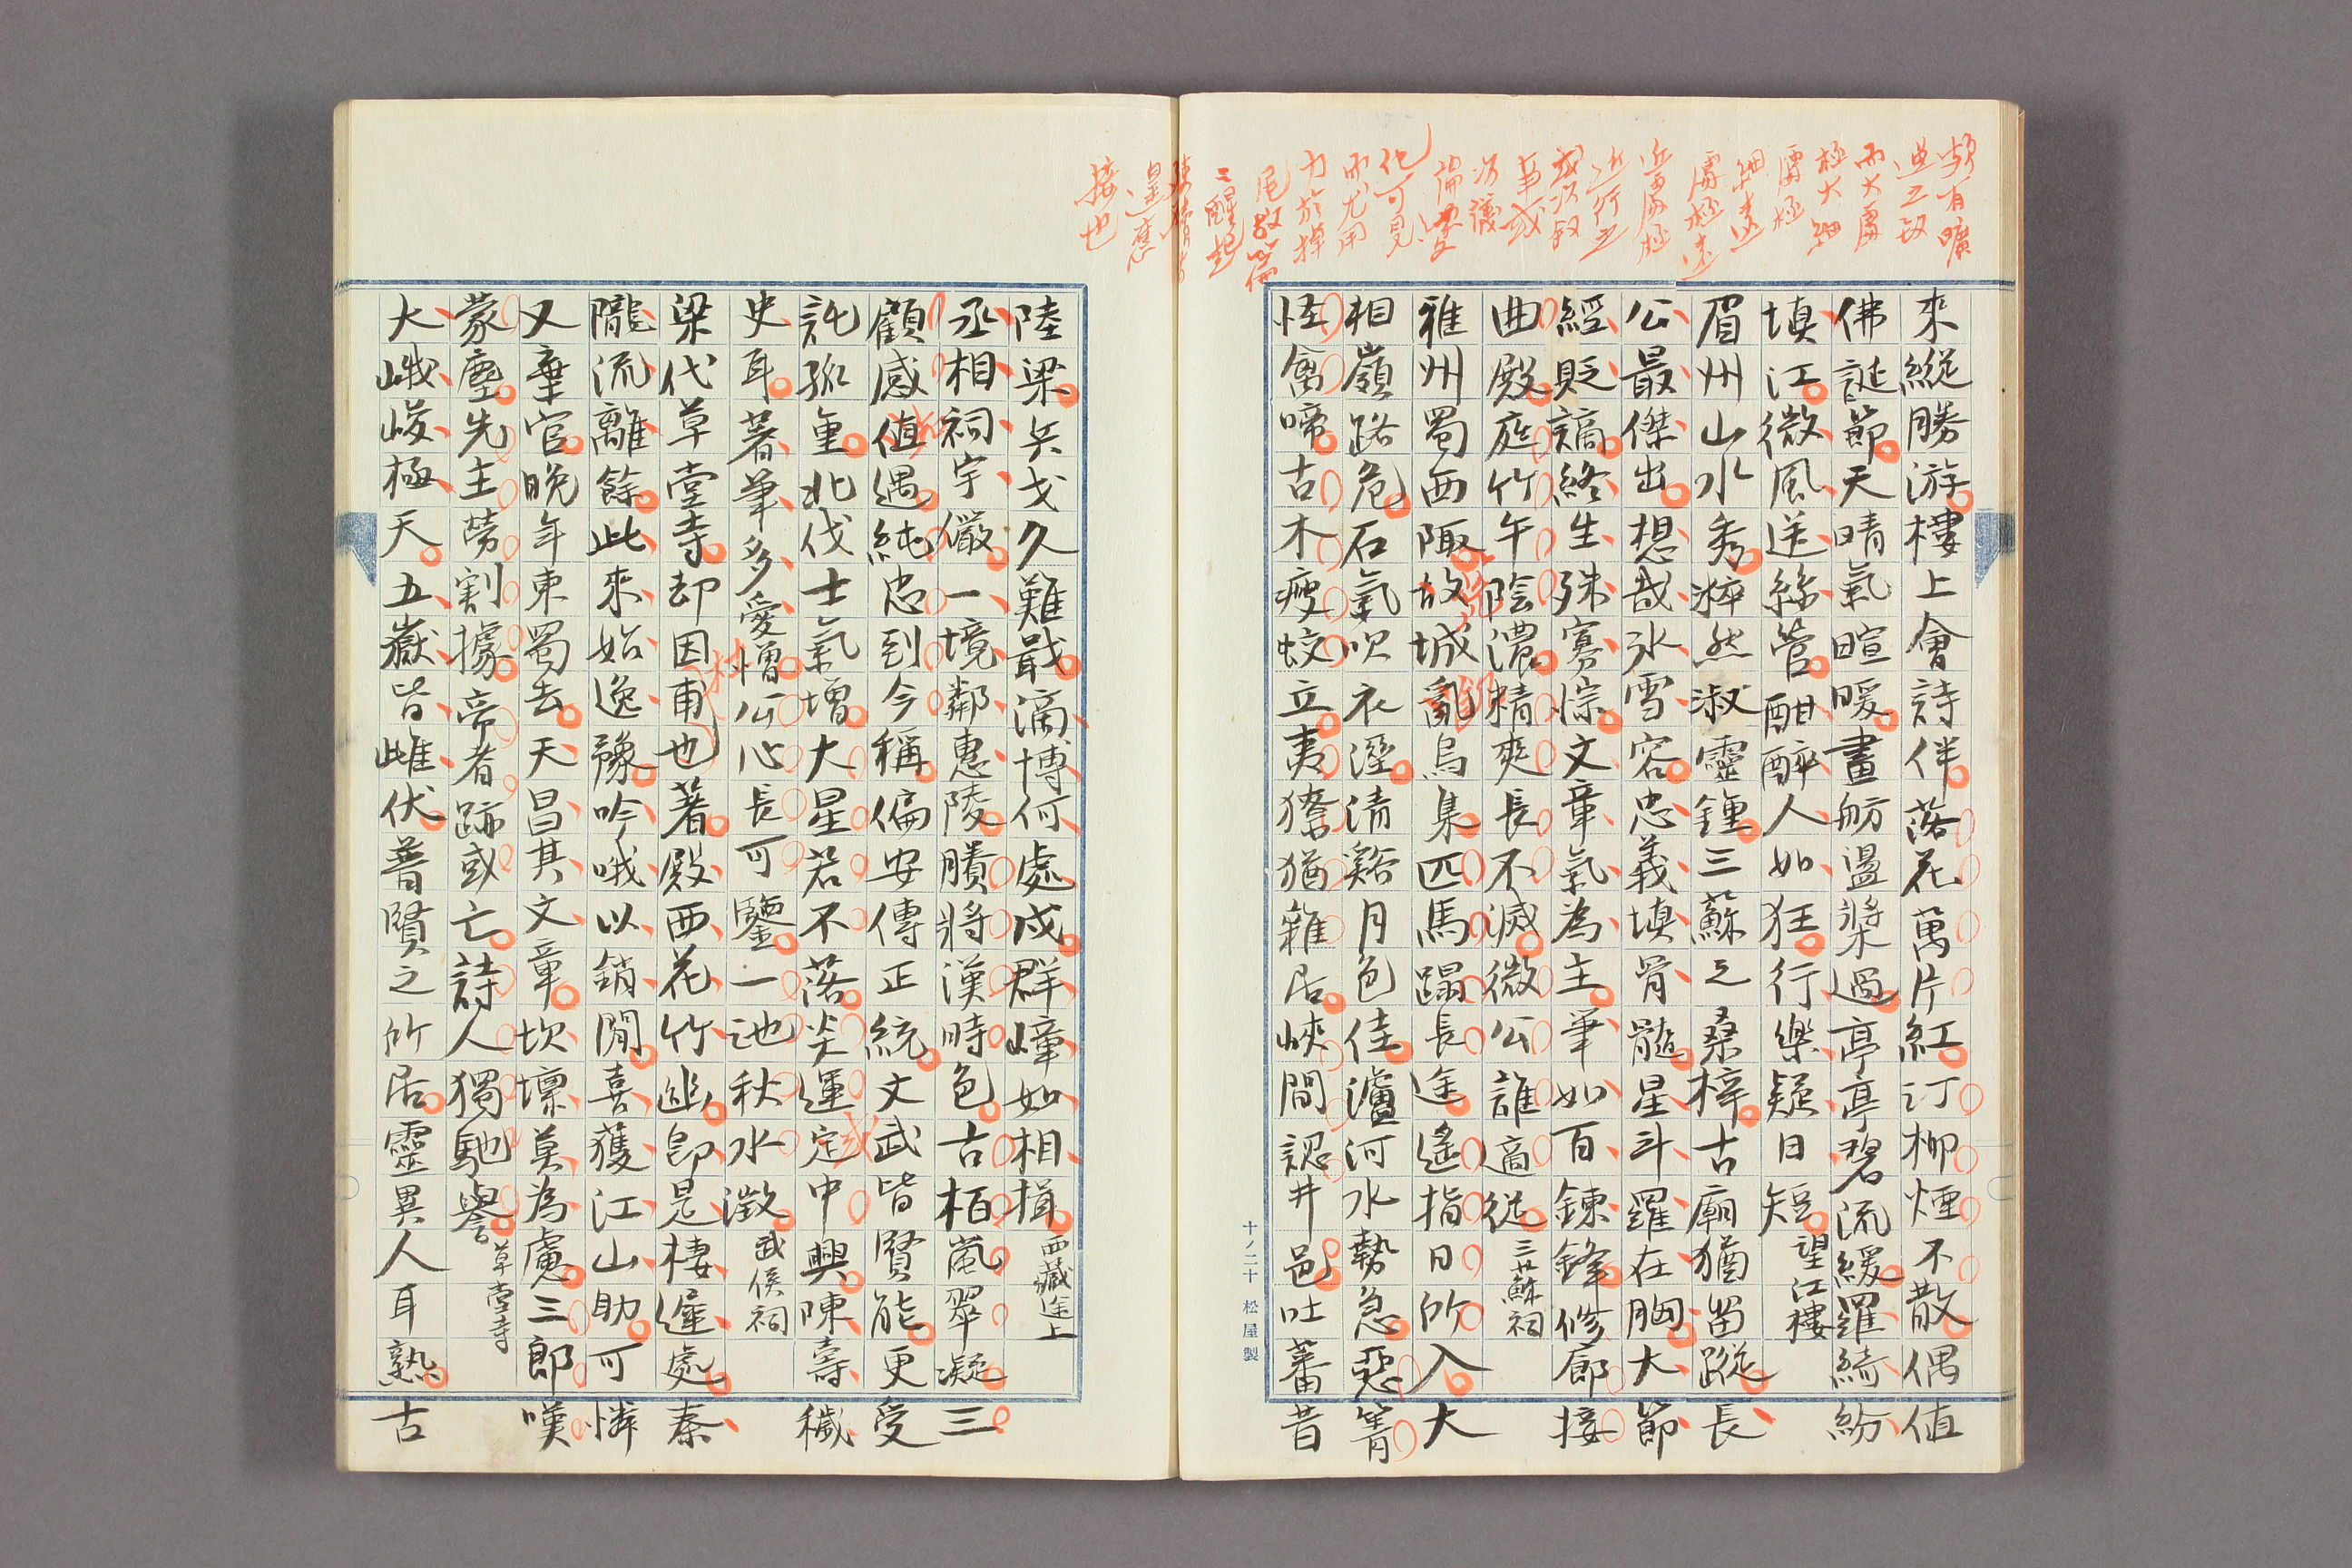 來縱勝游樓上會詩伴落花萬片紅汀柳煙不散偶值
佛誕節天晴氣暄暖畫舫盪槳過亭亭碧流緩羅綺紛
填江微風送絲管酣醉人如狂行樂疑日短望江樓
眉州山水秀粹然淑靈鍾三蘇之桑梓古廟猶留蹤長
公最傑出想哉冰雪容忠義填骨髓星斗羅在胸大節
經貶謫終生殊寡悰文章氣為主筆如百鍊鋒修廊接
曲殿庭竹午陰濃精爽長不滅微公誰適從三蘇祠
雅州蜀西陬故城亂烏集匹馬蹋長途遙指日所入大
相嶺路危石氣吹衣溼清谿月色佳瀘河水勢急惡箐
怪禽啼古木瘦蛟立夷獠猶雜居峽間認井邑吐蕃昔
十ノ二十 松屋製
陸梁兵戈久難戢滴博何處戍群嶂如相揖西藏途上
丞相祠宇儼一境鄰惠陵賸將漢時色古栢嵐翠凝三
顧感值遇純忠到今稱偏安傳正統文武皆賢能更受
託孤重北伐士氣增大星若不落炎運定中興陳壽穢
史耳著筆多愛憎公心長可鑒一池秋水澂武侯祠
梁代草堂寺却因甫也著殿西花竹幽即是棲遲處秦
隴流離餘此來始逸豫吟哦以銷閒喜獲江山助可憐
又棄官晚年東蜀去天昌其文章坎壈莫為慮三郎嘆
蒙塵先主勞割據帝者跡或亡詩人獨馳譽草堂寺
大峨峻極天五嶽皆雌伏普賢之所居靈異人耳熟古